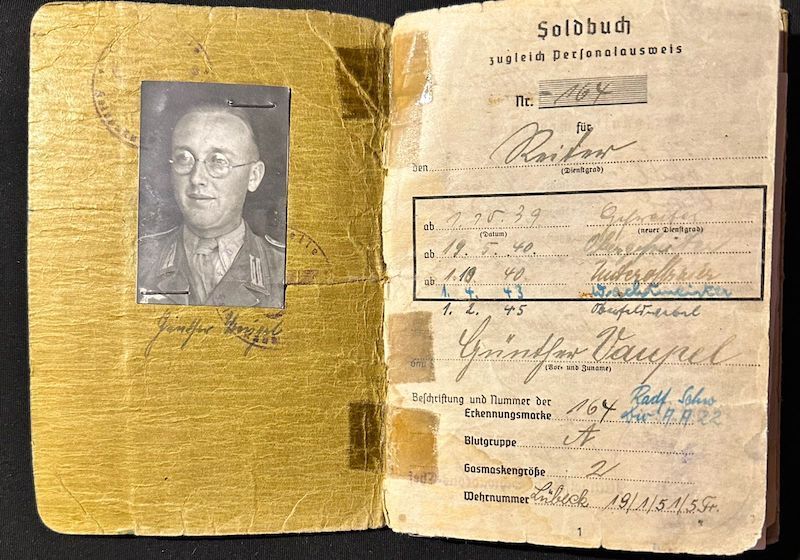 Günther Vaupel
Soldbuch
zugleich Personalausweis
Nr. 164
für
den Reiter
(Dienstgrad)
ab 1.10.39 Gefreiter
(Datum) (neuer Dienstgrad)
ab 19. 5. 40. Obergefreiter
ab 1.10 40. Unteroffizier
1. 4. 43 Wachtmeister
1. 2. 45 Oberfeldwebel
Günther Vaupel
(Vor- und Zuname)
Beschriftung und Nummer der
Erkennungsmarke 164 Radf. Schw
Div. A.A 22
Blutgruppe A
Gasmaskengröße 2
Wehrnummer Lübeck 19/1/51/5 Fr.
1